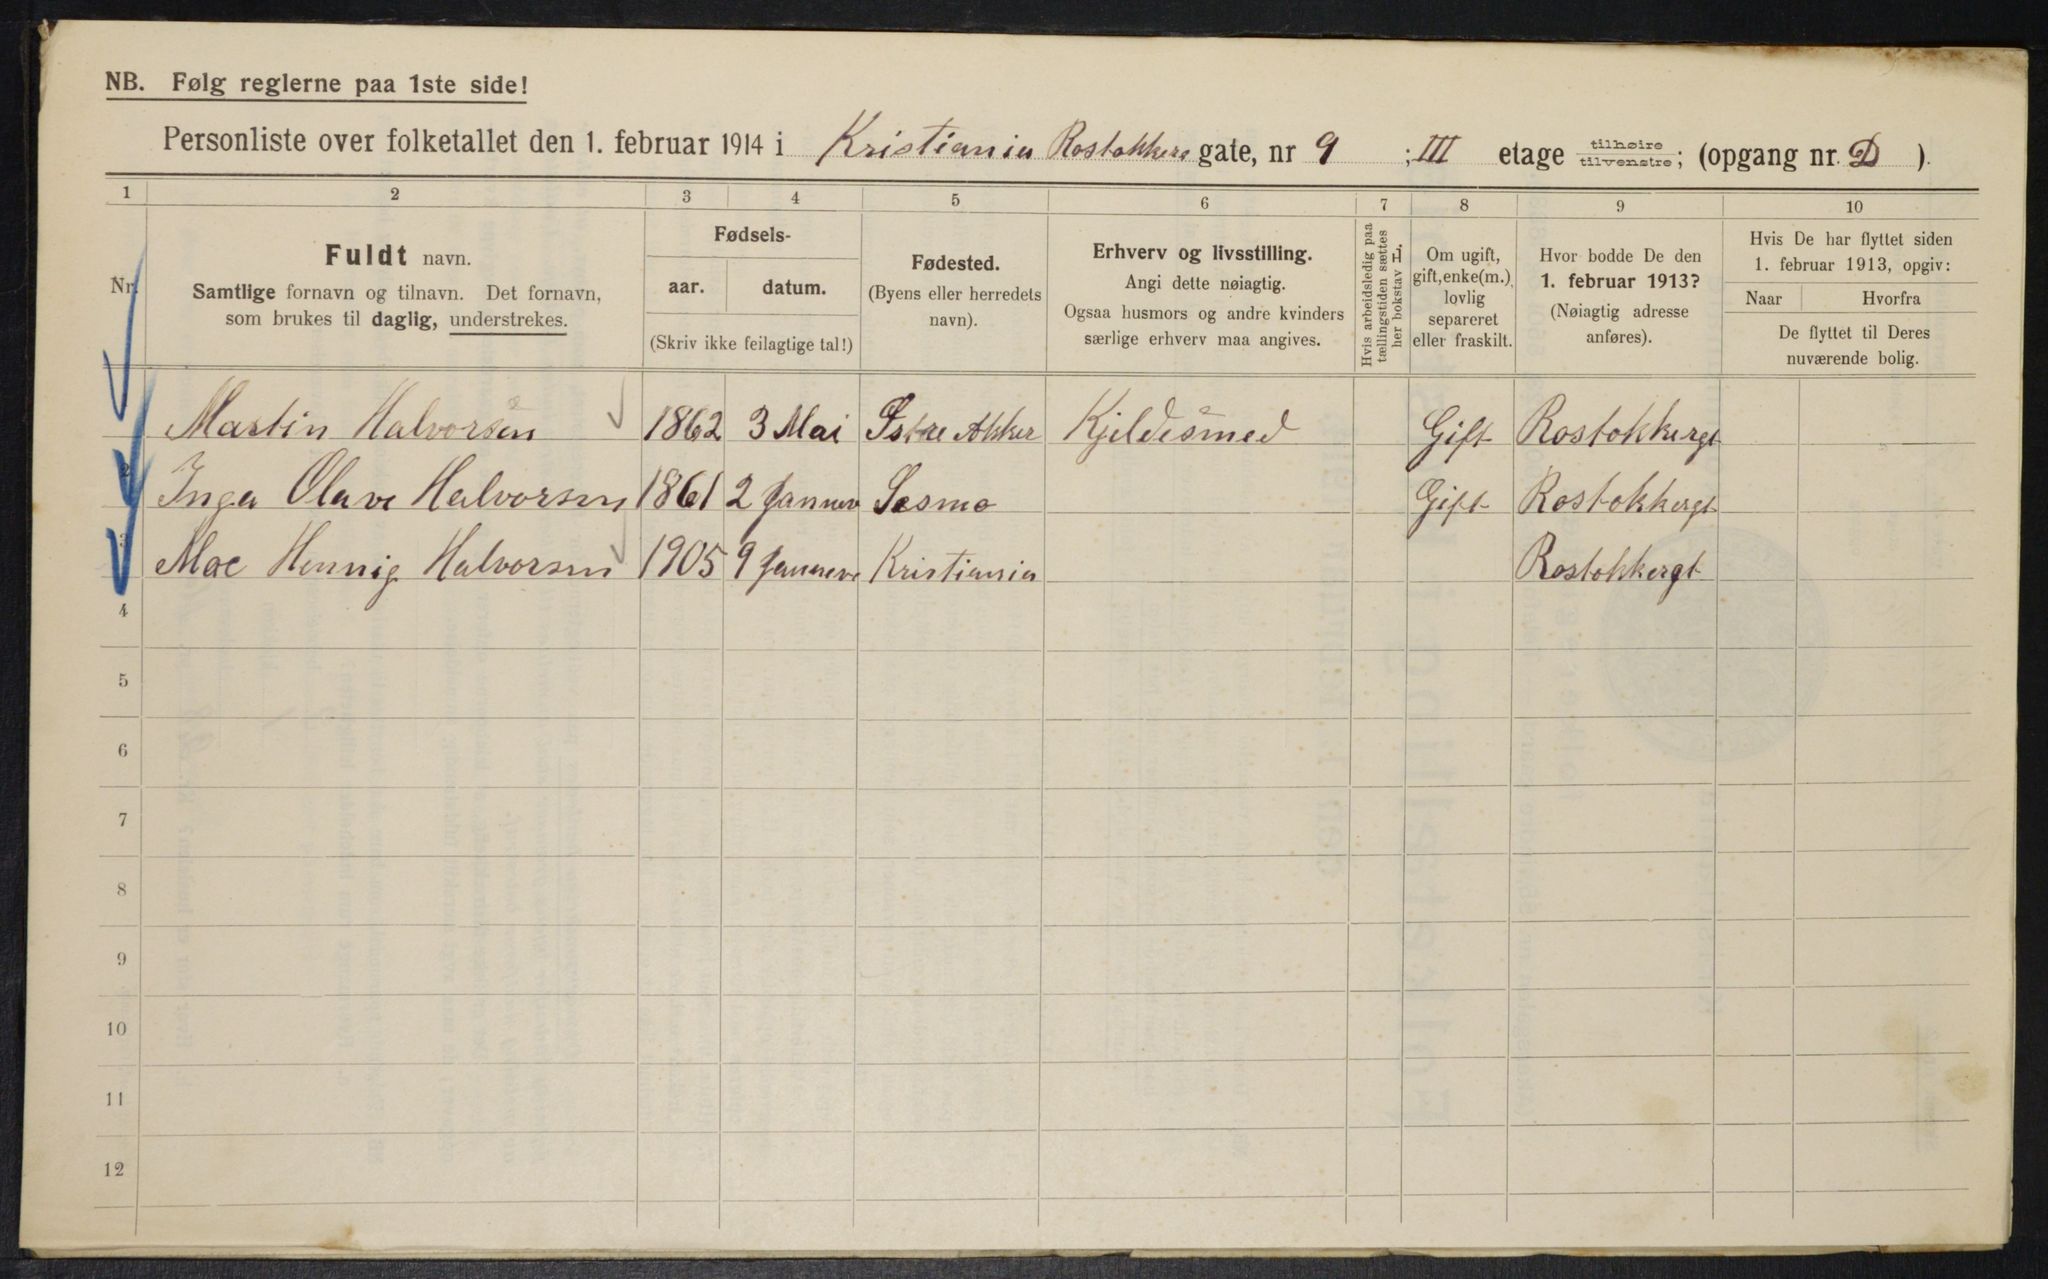 NB. Følg reglerne paa 1ste side!
Personliste over folketallet den 1. februar 1914 i Kristiania Rostokkers gate, nr 9 ; III etage tilhøire tilvenstre; (opgang nr. D ).
1 2 3 4 5 6 7 8 9 10
Nr.
Fuldt navn.
Samtlige fornavn og tilnavn. Det fornavn,
som brukes til daglig, understrekes.
Fødsels-
aar. datum.
(Skriv ikke feilagtige tal!)
Fødested.
(Byens eller herredets
navn).
Erhverv og livsstilling.
Angi dette nøiagtig.
Ogsaa husmors og andre kvinders
særlige erhverv maa angives.
Hvis arbeidsledig paa
tællingstiden sættes
her bokstav L.
Om ugift,
gift, enke(m.),
lovlig
separeret
eller fraskilt.
Hvor bodde De den
1. februar 1913?
(Nøiagtig adresse
anføres).
Hvis De har flyttet siden
1. februar 1913, opgiv:
Naar Hvorfra
De flyttet til Deres
nuværende bolig.
Martin Halvorsen 1862 3 Mai Østre Akker Kjeldesmed Gift Rostokkergt
2 Inga Olave Halvorsen 1861 2 Januev Gift Rostokkergt
3 Mac Hennig Halvorsen 1905 9 Januev Kristiania Rostokkergt
4
5
6
7
8
9
10
11
12